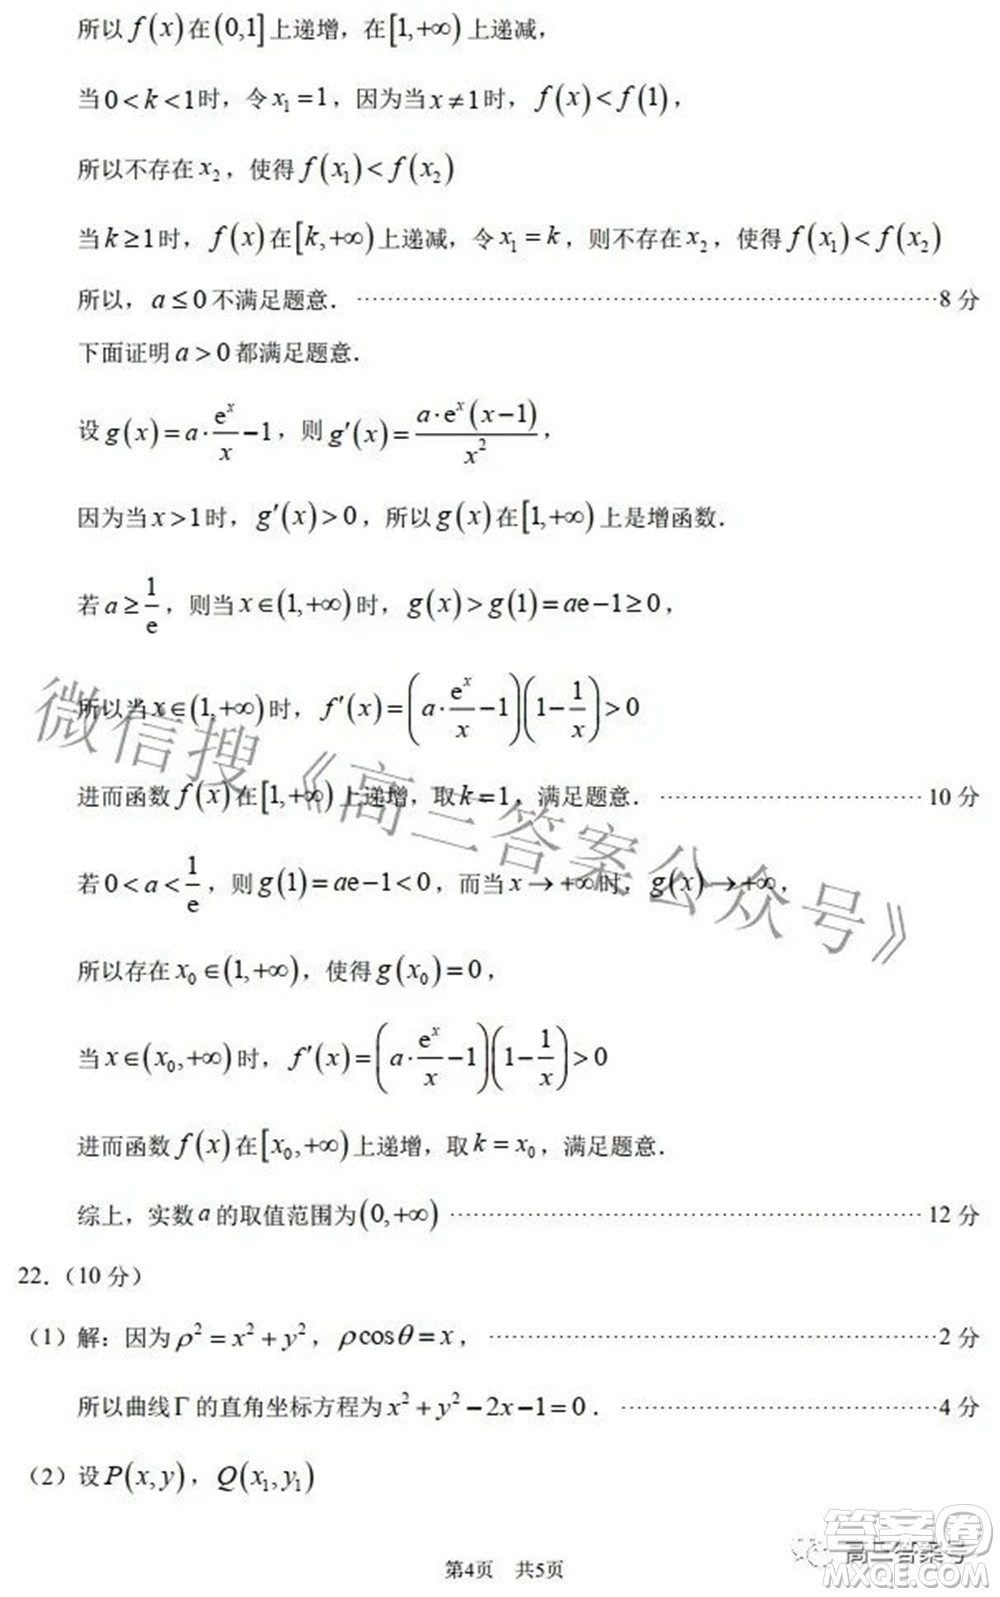 所以 f(x) 在 (0,1] 上递增，在 [1,+∞) 上递减，
当 0<k<1 时，令 x₁=1，因为当 x≠1 时，f(x)<f(1)，
所以不存在 x₂，使得 f(x₁)<f(x₂)
当 k≥1 时，f(x) 在 [k,+∞) 上递减，令 x₁=k，则不存在 x₂，使得 f(x₁)<f(x₂)
所以，a≤0 不满足题意．……………………8 分
下面证明 a>0 都满足题意．
设 g(x)=a·eˣ/x−1，则 g′(x)=a·eˣ(x−1)/x²，
因为当 x>1 时，g′(x)>0，所以 g(x) 在 [1,+∞) 上是增函数．
若 a≥1/e，则当 x∈(1,+∞) 时，g(x)>g(1)=ae−1≥0，
所以当 x∈(1,+∞) 时，f′(x)=(a·eˣ/x−1)(1−1/x)>0
进而函数 f(x) 在 [1,+∞) 上递增，取 k=1，满足题意．……………………10 分
若 0<a<1/e，则 g(1)=ae−1<0，而当 x→+∞ 时，g(x)→+∞，
所以存在 x₀∈(1,+∞)，使得 g(x₀)=0，
当 x∈(x₀,+∞) 时，f′(x)=(a·eˣ/x−1)(1−1/x)>0
进而函数 f(x) 在 [x₀,+∞) 上递增，取 k=x₀，满足题意．
综上，实数 a 的取值范围为 (0,+∞) ……………………12 分
22．（10 分）
（1）解：因为 ρ²=x²+y²，ρcosθ=x，……………………2 分
所以曲线 Γ 的直角坐标方程为 x²+y²−2x−1=0．……………………4 分
（2）设 P(x,y)，Q(x₁,y₁)
第4页 共5页
微信搜《高三答案公众号》
高三答案号
答案圈
MXQE.COM